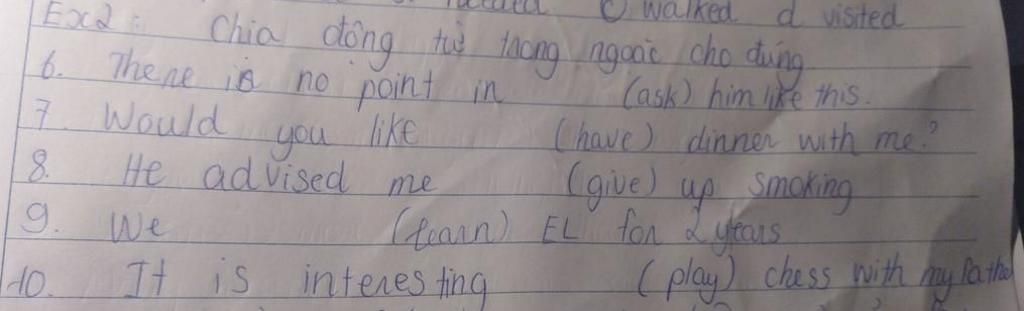 needed C walked d visited
Ex2: Chia động từ trong ngoặc cho đúng
6. There is no point in (ask) him like this.
7. Would you like (have) dinner with me?
8. He advised me (give) up smoking
9. We (learn) EL for 2 years
10. It is interesting (play) chess with my father